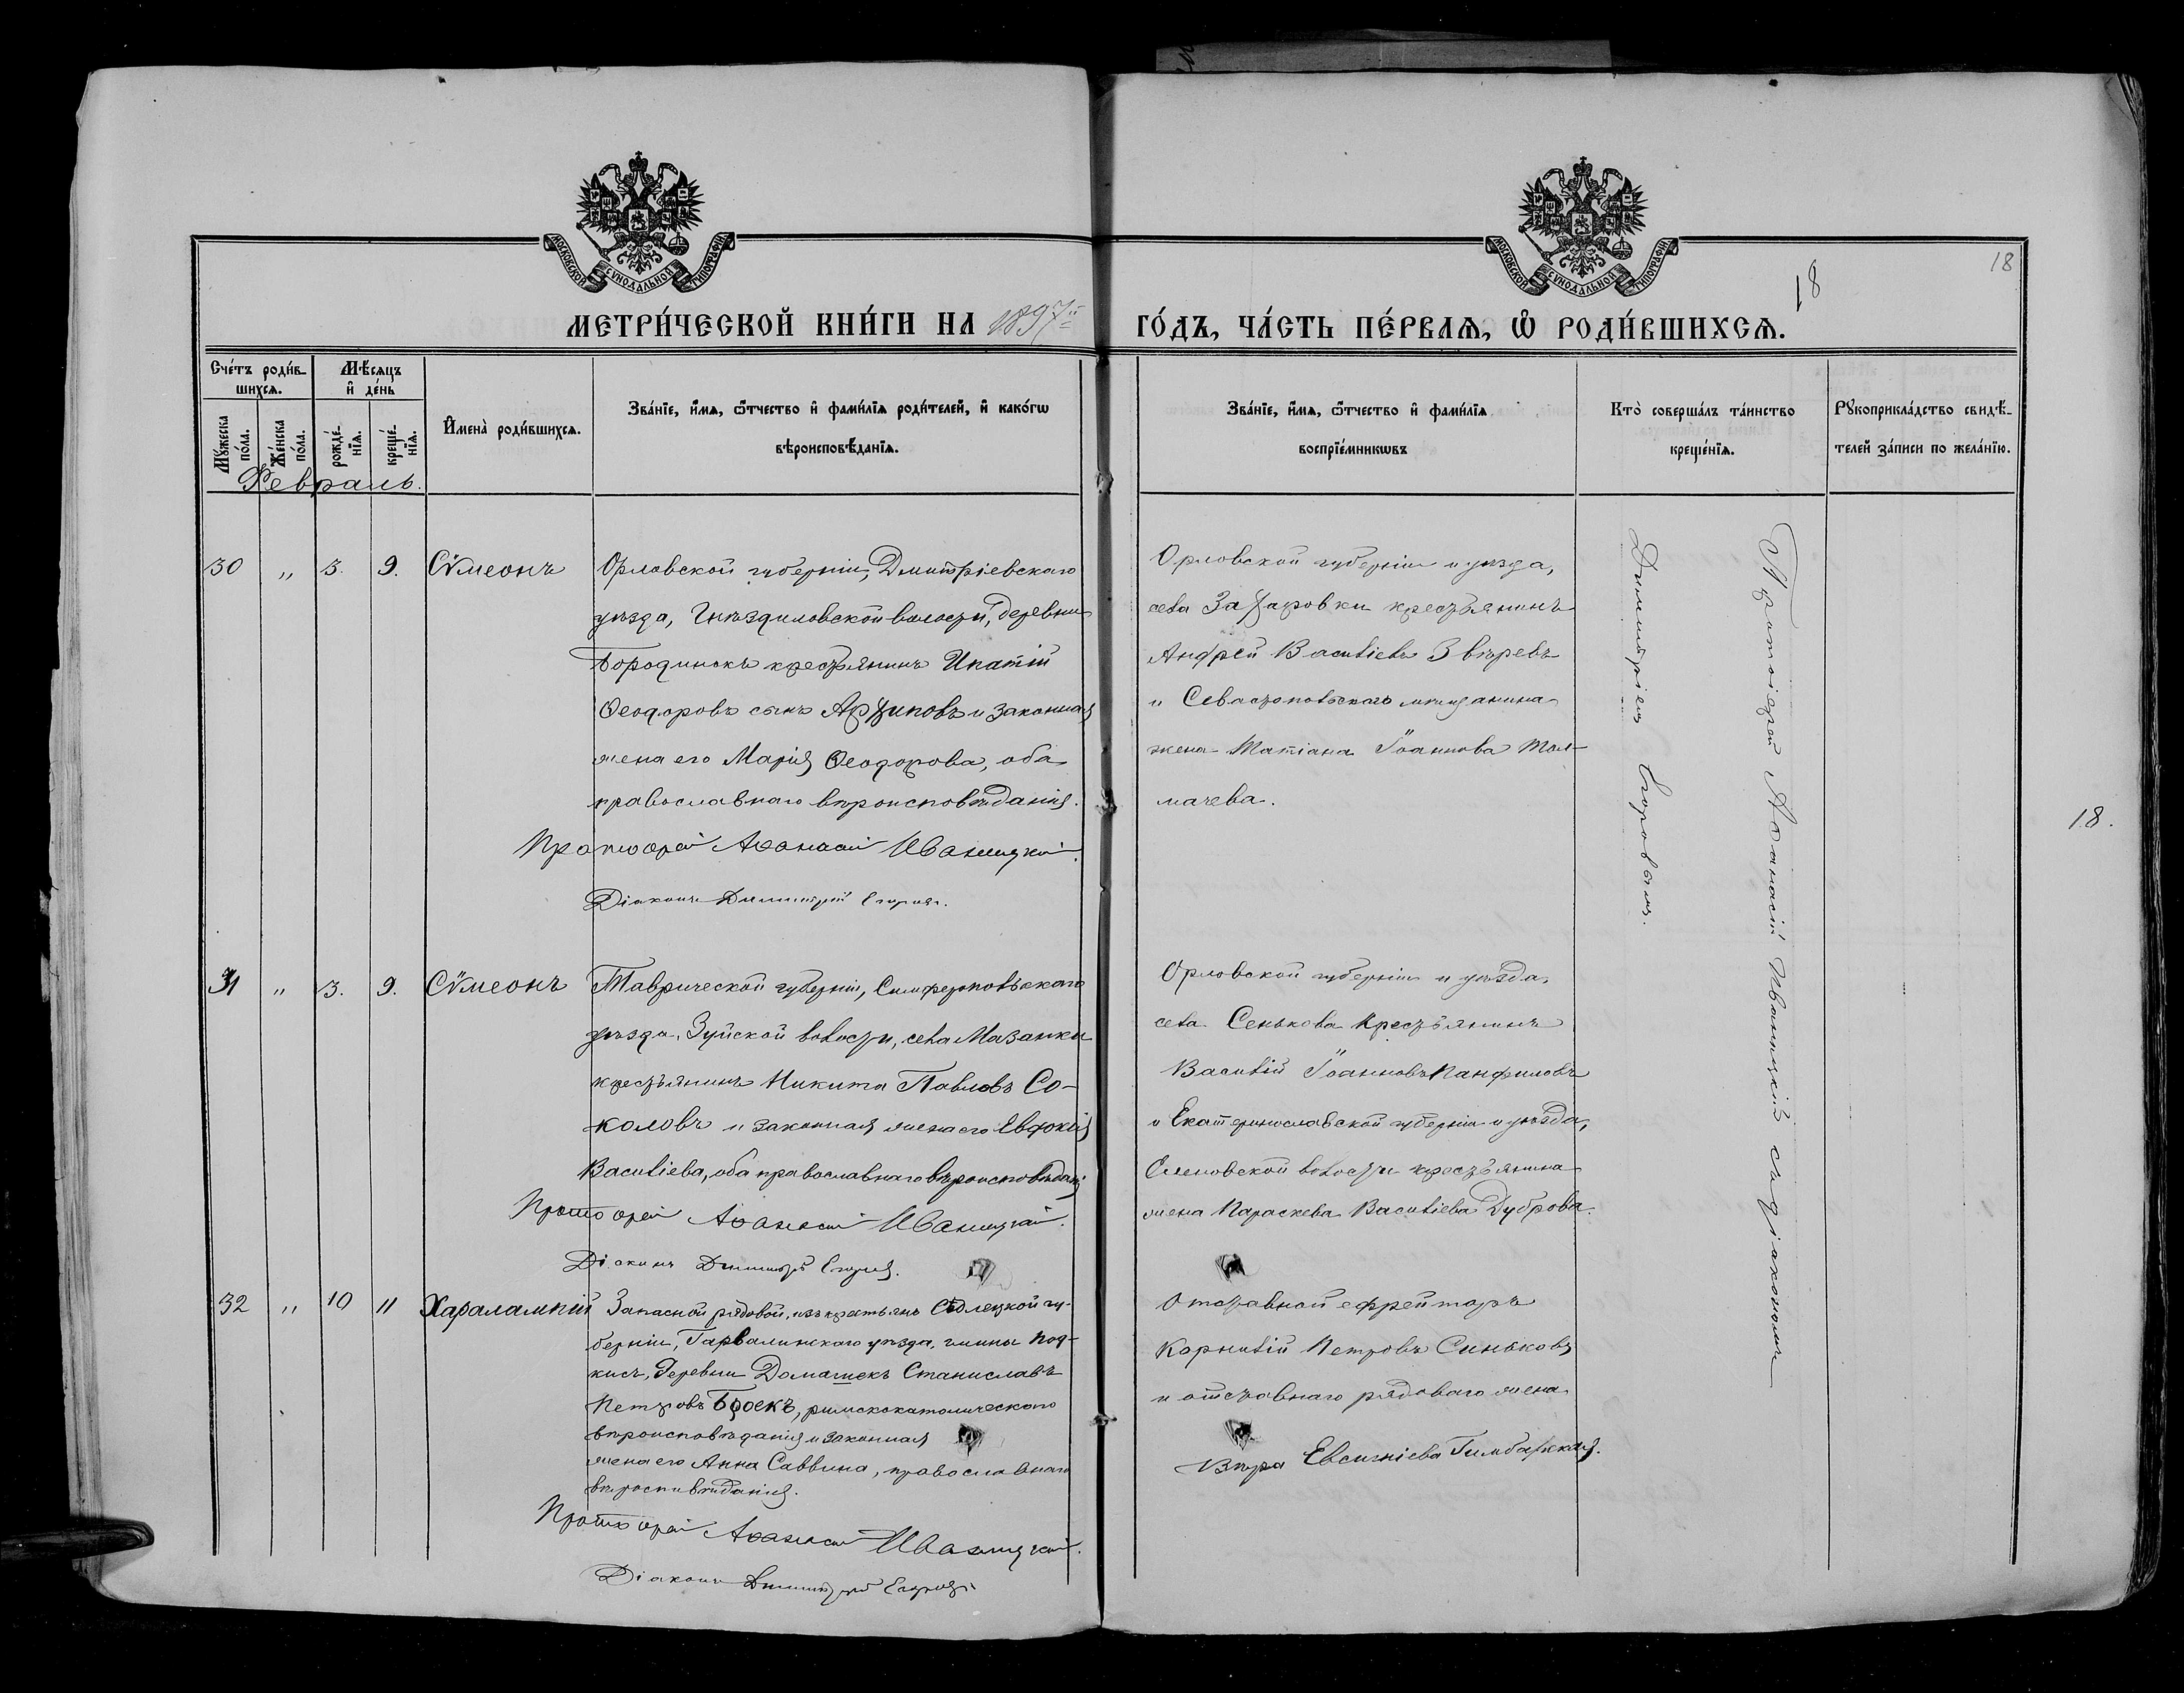 МОСКОВСКОЙ СѴНОДАЛЬНОЙ ТИПОГРАФІИ
МОСКОВСКОЙ СѴНОДАЛЬНОЙ ТИПОГРАФІИ
18
18
МЕТРИ́ЧЕСКОЙ КНИ́ГИ НА 1897й
ГО́ДЪ, ЧА́СТЬ ПЕ́РВАѦ, Ѡ҆ РОДИ́ВШИХСѦ.
Сче́тъ роди́в-
шихсѧ.
Мѣ́сѧцъ
и҆ де́нь
Мꙋ́жеска
по́ла.
Же́нска
по́ла.
рожде́-
нїѧ.
креще́-
нїѧ.
И҆мена̀ роди́вшихсѧ.
Зва́нїе, и҆́мѧ, ѻ҆́тчество и҆ фами́лїѧ роди́телей, и҆ како́гѡ
вѣроисповѣ́данїѧ.
Зва́нїе, и҆́мѧ, ѻ҆́тчество и҆ фами́лїѧ
воспрїе́мникѡвъ
Кто̀ соверша́лъ та́инство
креще́нїѧ.
Рꙋкоприкла́дство свидѣ́-
телей за́писи по жела́нїю.
Февраль.
30 " 3. 9. Сѵмеонъ
Орловской губерніи, Дмитріевскаго
уѣзда, Гнѣздиловской волости, деревни
Бородинскъ крестьянинъ Ипатій
Ѳеодоровъ сынъ Архиповъ и законная
жена его Марія Ѳеодорова, оба
православнаго вѣроисповѣданія.
Протоіерей Аѳанасій Иваницкій.
Діаконъ Димитрій Егоровъ.
Орловской губерніи и уѣзда,
села Захаровки крестьянинъ
Андрей Василіевъ Звѣревъ
и Севастопольскаго мѣщанина
жена Татіана Іоаннова Тол-
мачева.
Протоіерей Аѳанасій Иваницкій съ діакономъ
Димитріемъ Егоровымъ.
18.
31 " 3. 9. Сѵмеонъ
Таврической губерніи, Симферопольскаго
уѣзда, Зуйской волости, села Мазанки
крестьянинъ Никита Павловъ Со-
коловъ и законная жена его Евдокія
Василіева, оба православнаго вѣроисповѣданія
Протоіерей Аѳанасій Иваницкій.
Діаконъ Димитрій Егоровъ.
Орловской губерніи и уѣзда,
села Сенькова крестьянинъ
Василій Іоанновъ Панфиловъ
и Екатеринославской губерніи и уѣзда,
волости крестьянина
жена Параскева Василіева Дуброва.
32 " 10 11 Харалампій
Запасной рядовой, изъ крестьянъ Сѣдлецкой гу-
берніи, Гарволинскаго уѣзда, гмины
деревни Домашекъ Станиславъ
Петровъ Броекъ, римскокатолическаго
вѣроисповѣданія и законная
жена его Анна Саввина, православнаго
вѣроисповѣданія.
Протоіерей Аѳанасій Иваницкій.
Діаконъ Димитрій Егоровъ.
Отставной ефрейторъ
Корнилій Петровъ Синьковъ
и отставнаго рядоваго жена
Вѣра Евсигніева Гимбарская.